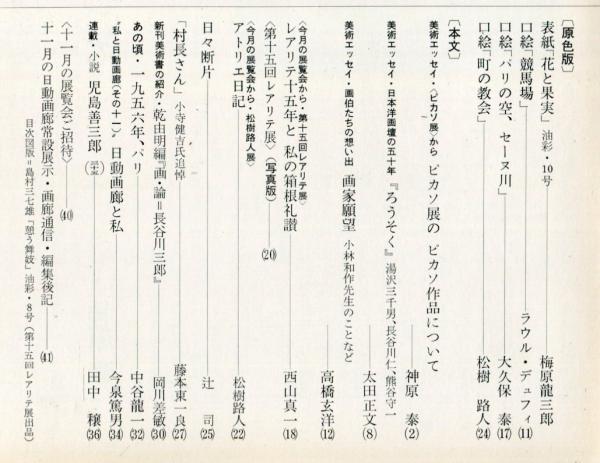 〔原色版〕
表紙「花と果実」 油彩・10号 梅原龍三郎
口絵「競馬場」 ラウル・デュフィ(11)
口絵「パリの空、セーヌ川」 大久保 泰(17)
口絵「町の教会」 松樹 路人(24)
〔本文〕
美術エッセイ・〈ピカソ展〉から ピカソ展の ピカソ作品について 神原 泰(2)
美術エッセイ・日本洋画壇の五十年 『ろうそく』 湯沢三千男、長谷川仁、熊谷守一 太田正文(8)
美術エッセイ・画伯たちの想い出 画家願望 小林和作先生のことなど 高橋玄洋(12)
〈今月の展覧会から・第十五回レアリテ展〉
レアリテ十五年と 私の箱根礼讃 西山真一(18)
〈第十五回レアリテ展〉(写真版) (20)
〈今月の展覧会から・松樹路人展〉
アトリエ日記 松樹路人(22)
日々断片 辻 司(25)
「村長さん」 小寺健吉氏追悼 藤本東一良(27)
新刊美術書の紹介・乾由明編『画・論=長谷川三郎』 岡川差敏(30)
あの頃・一九五六年、パリ 中谷龍一(32)
〝私と日動画廊(その十一)〟 日動画廊と私 今泉篤男(34)
連載・小説 児島善三郎 田中 穣(36)
〈十一月の展覧会ご招待〉 (40)
十一月の日動画廊常設展示・画廊通信・編集後記 (41)
目次図版=島村三七雄「憩う舞妓」油彩・8号(第十五回レアリテ展出品)